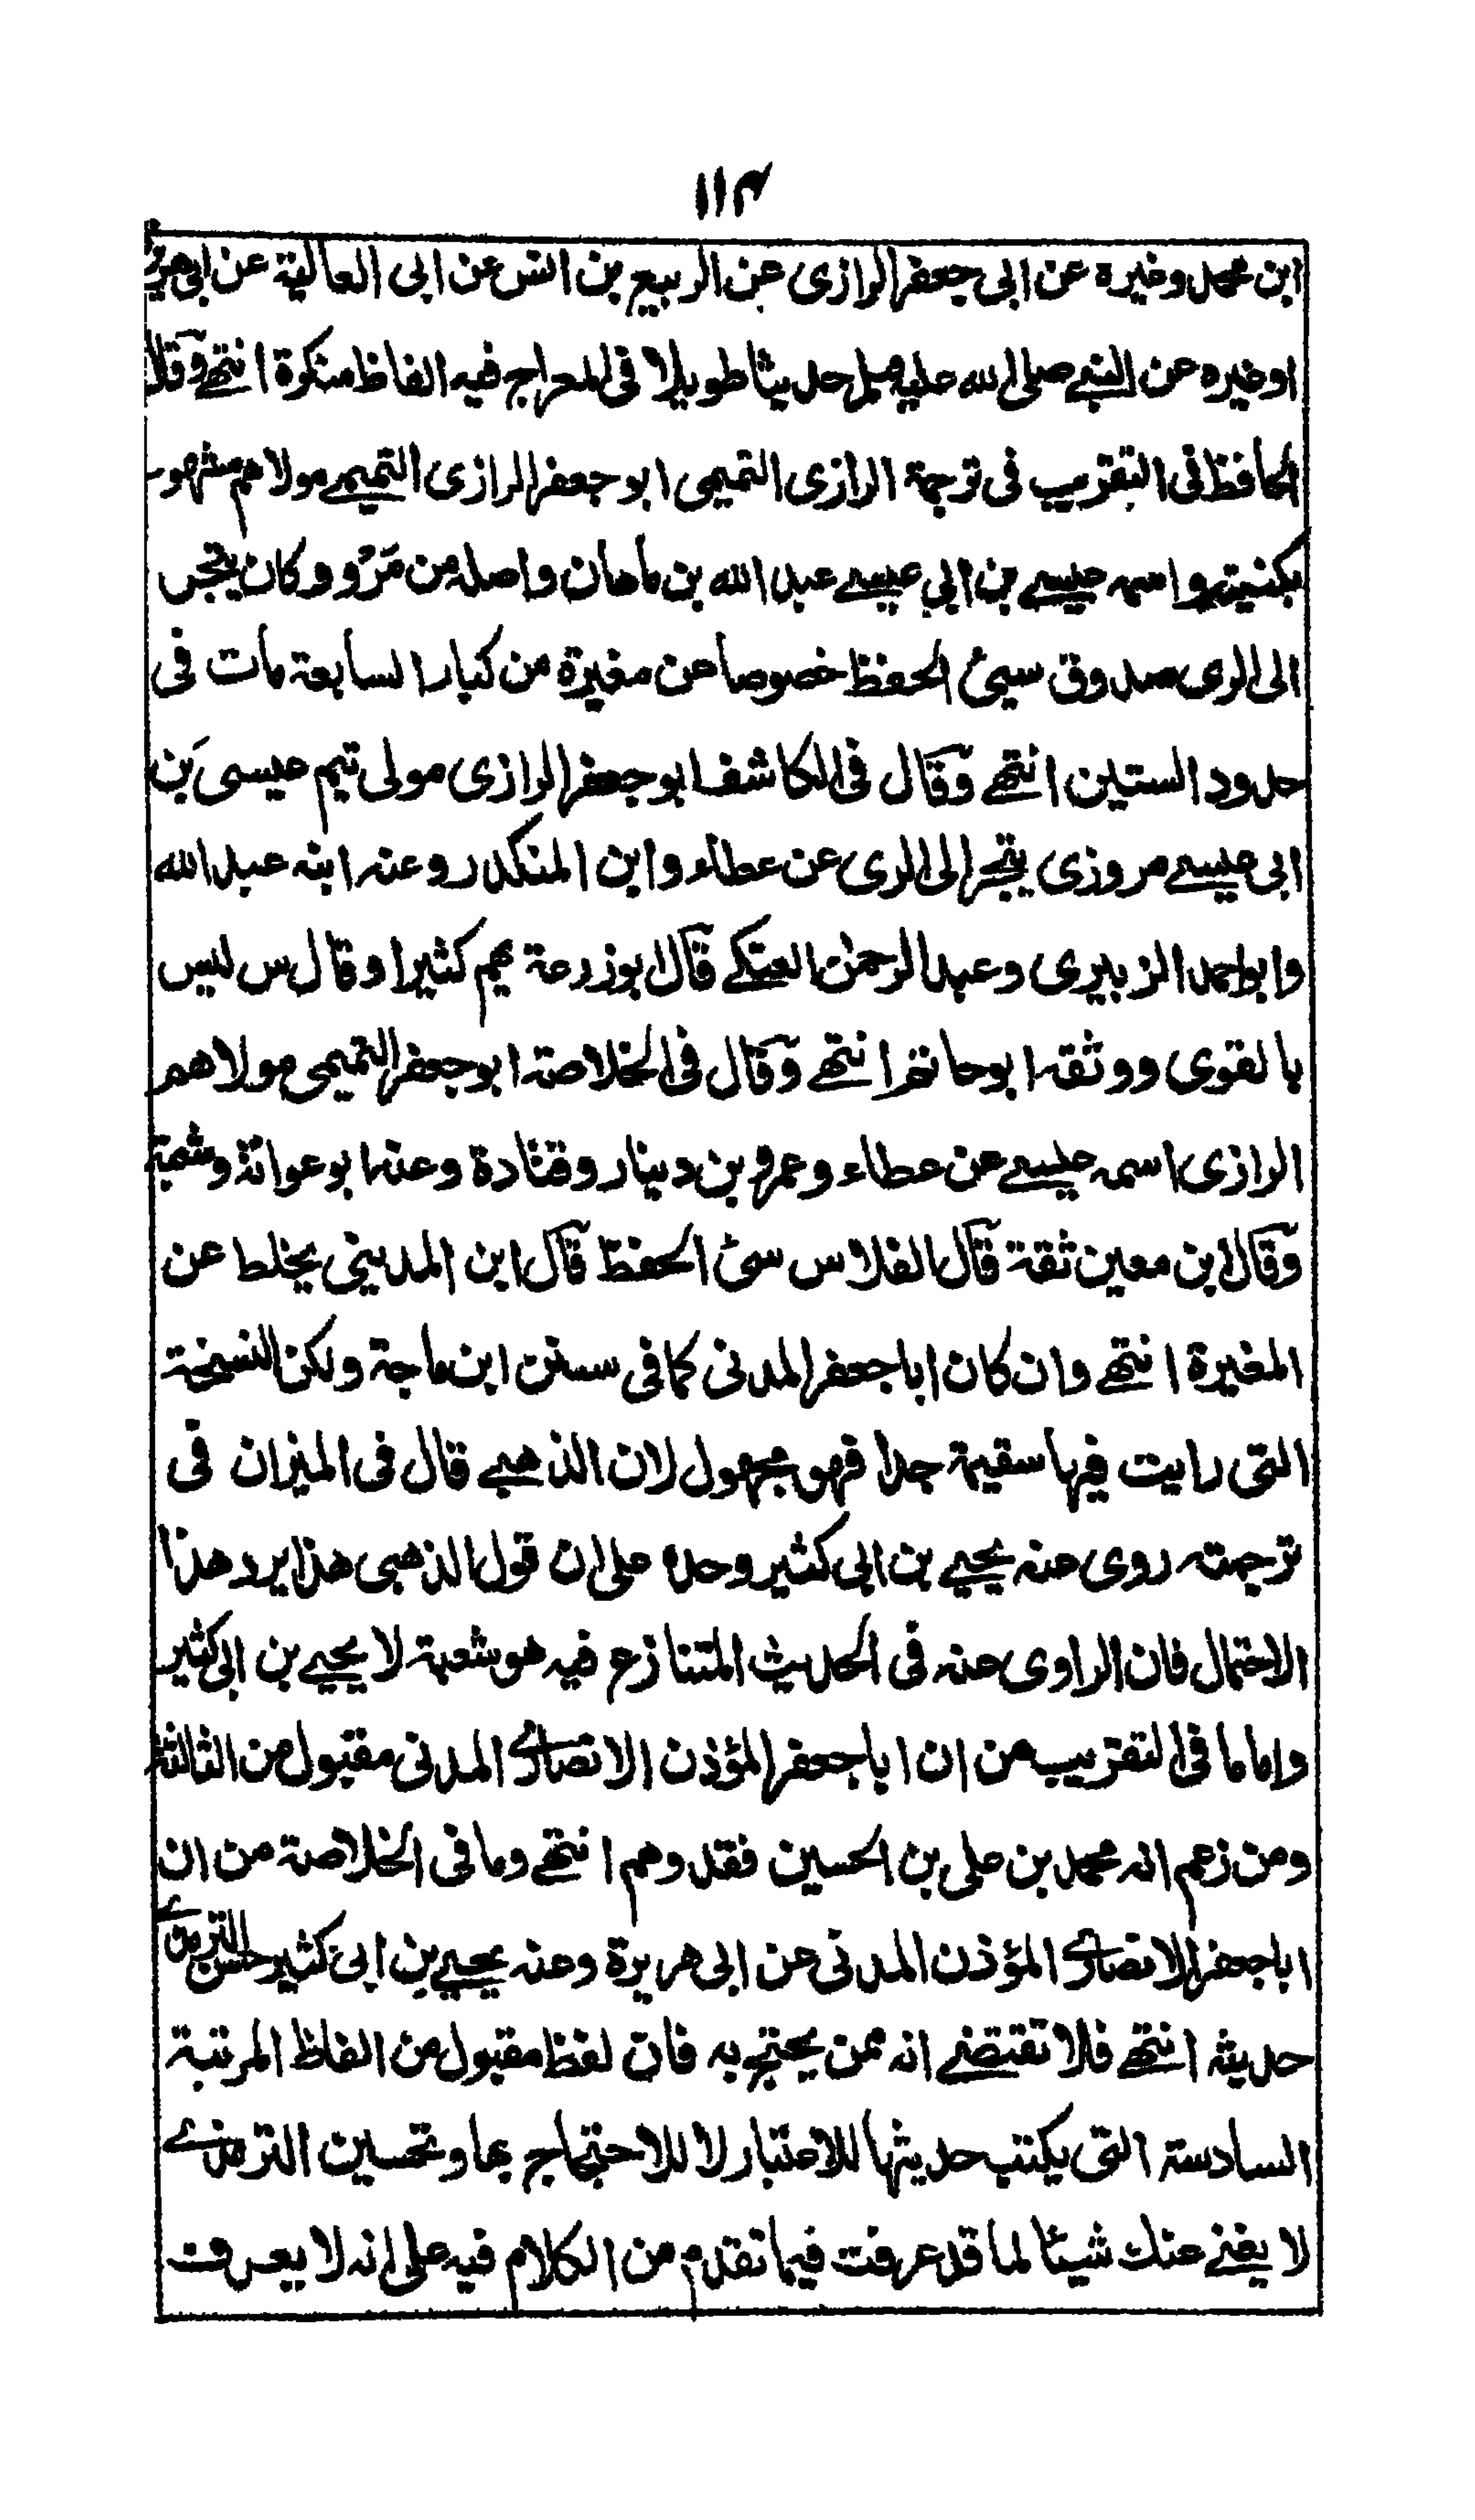 ١١٣
ابن محمد وغيره عن ابى جعفر الرازى عن الربيع بن انس عن ابى العالية عن ابى هريرة
او غيره عن النبے صلى الله عليه وسلم حديثا طويلا فى المعراج فيه الفاظ منكرة انتهے وقال
الحافظ فى التقريب فى ترجمة الرازى التميمى ابو جعفر الرازى التميمے مولاهم مشهور
بكنيته واسمه عيسے بن ابي عيسے عبد الله بن ماهان واصله من مَرْو وكان يتجر
الى الرى صدوق سيئ الحفظ خصوصا عن مغيرة من كبار السابعة مات فى
حدود الستين انتهے وقال فى الكاشف ابو جعفر الرازى مولى تيم عيسى بن
ابى عيسے مروزى يتجر الى الرى عن عطاء وابن المنكدر وعنه ابنه عبد الله
وابو احمد الزبيرى وعبد الرحمن العتكے قال ابو زرعة يهم كثيرا وقال س ليس
بالقوى ووثقه ابو حاتم انتهے وقال فى الخلاصة ابو جعفر التميمى مولاهم
الرازى اسمه عيسے عن عطاء وعمرو بن دينار وقتادة وعنه ابو عوانة وشعبة
وقال ابن معين ثقة قال الفلاس سئ الحفظ قال ابن المديني يخلط عن
المغيرة انتهے وان كان ابا جعفر المدنى كما فى سنن ابن ماجة ولكن النسخة
التى رايت فيها سقيمة جدا فهو مجهول لان الذهبے قال فى الميزان فى
ترجمته روى عنه يحيے بن ابى كثير وحده على ان قول الذهبى هذا يرد هذا
الاحتمال فان الراوى عنه فى الحديث المتنازع فيه هو شعبة لا يحيے بن ابى كثير
واما ما فى التقريب من ان ابا جعفر المؤذن الانصارے المدنى مقبول من الثالثة
ومن زعم انه محمد بن على بن الحسين فقد وهم انتهے وما فى الخلاصة من ان
ابا جعفر الانصارے المؤذن المدنى عن ابى هريرة وعنه يحيے بن ابى كثير حسن الترمذے
حديثه انتهے فلا تقتضے انه ممن يحتج به فان لفظ مقبول من الفاظ المرتبة
السادسة التى يكتب حديثها للاعتبار لا للاحتجاج بها وتحسين الترمذے
لا يغنے عنك شيئا لما قد عرفت فيما تقدم من الكلام فيه على انه لا يعرف